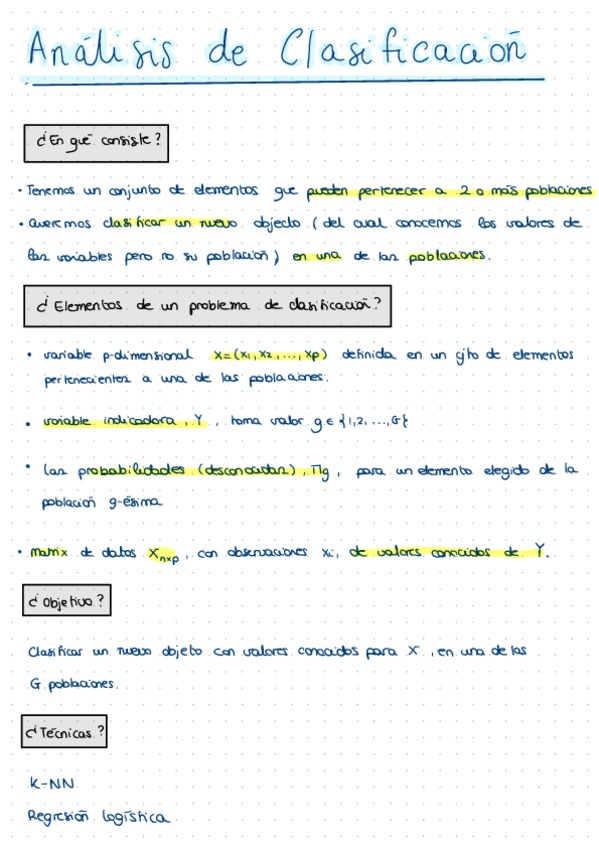 Análisis de Clasificación
¿En qué consiste?
• Tenemos un conjunto de elementos que pueden pertenecer a 2 o más poblaciones
• Queremos clasificar un nuevo objecto (del cual conocemos los valores de
las variables pero no su población) en una de las poblaciones.
¿Elementos de un problema de clasificación?
• variable p-dimensional X=(x₁, x₂, ..., xp) definida en un cjto de elementos
pertenecientes a una de las poblaciones.
• variable indicadora, Y, toma valor g ∈ {1,2,...,G}
• Las probabilidades (desconocidas), πg, para un elemento elegido de la
población g-ésima
• matrix de datos Xn×p, con observaciones xi, de valores conocidos de Y.
¿Objetivo?
Clasificar un nuevo objeto con valores conocidos para X, en una de las
G poblaciones.
¿Técnicas?
K-NN
Regresión logística